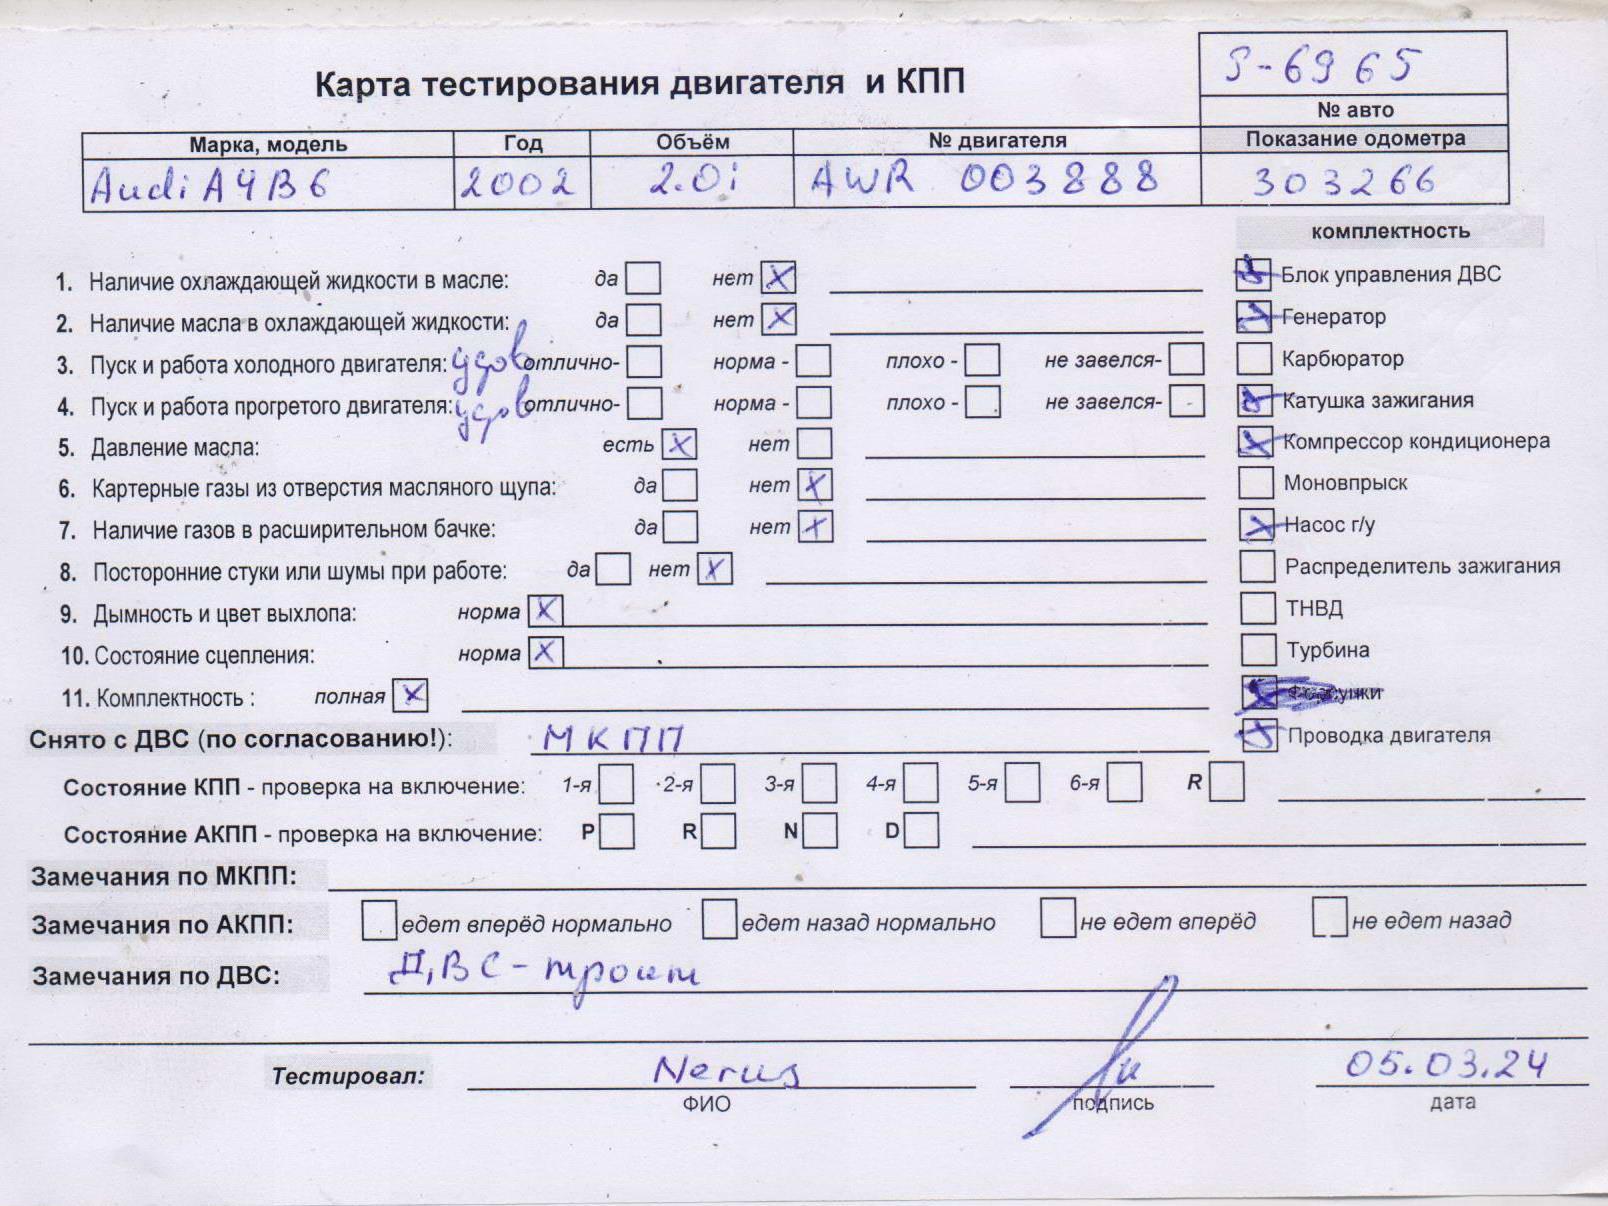 Карта тестирования двигателя и КПП
S-6965
№ авто
Марка, модель Год Объём № двигателя Показание одометра
Audi A4B6 2002 2.0i AWR 003888 303266
комплектность
1. Наличие охлаждающей жидкости в масле: да нет X
Блок управления ДВС
2. Наличие масла в охлаждающей жидкости: да нет X
Генератор
3. Пуск и работа холодного двигателя: удов отлично- норма - плохо - не завелся-
Карбюратор
4. Пуск и работа прогретого двигателя: удов отлично- норма - плохо - не завелся-
Катушка зажигания
5. Давление масла: есть X нет
Компрессор кондиционера
6. Картерные газы из отверстия масляного щупа: да нет X
Моновпрыск
7. Наличие газов в расширительном бачке: да нет X
Насос г/у
8. Посторонние стуки или шумы при работе: да нет X
Распределитель зажигания
9. Дымность и цвет выхлопа: норма X
ТНВД
10. Состояние сцепления: норма X
Турбина
11. Комплектность : полная X
Снято с ДВС (по согласованию!): МКПП
Проводка двигателя
Состояние КПП - проверка на включение: 1-я 2-я 3-я 4-я 5-я 6-я R
Состояние АКПП - проверка на включение: P R N D
Замечания по МКПП:
Замечания по АКПП: едет вперёд нормально едет назад нормально не едет вперёд не едет назад
Замечания по ДВС: ДВС - троит
Тестировал: 05.03.24
ФИО подпись дата